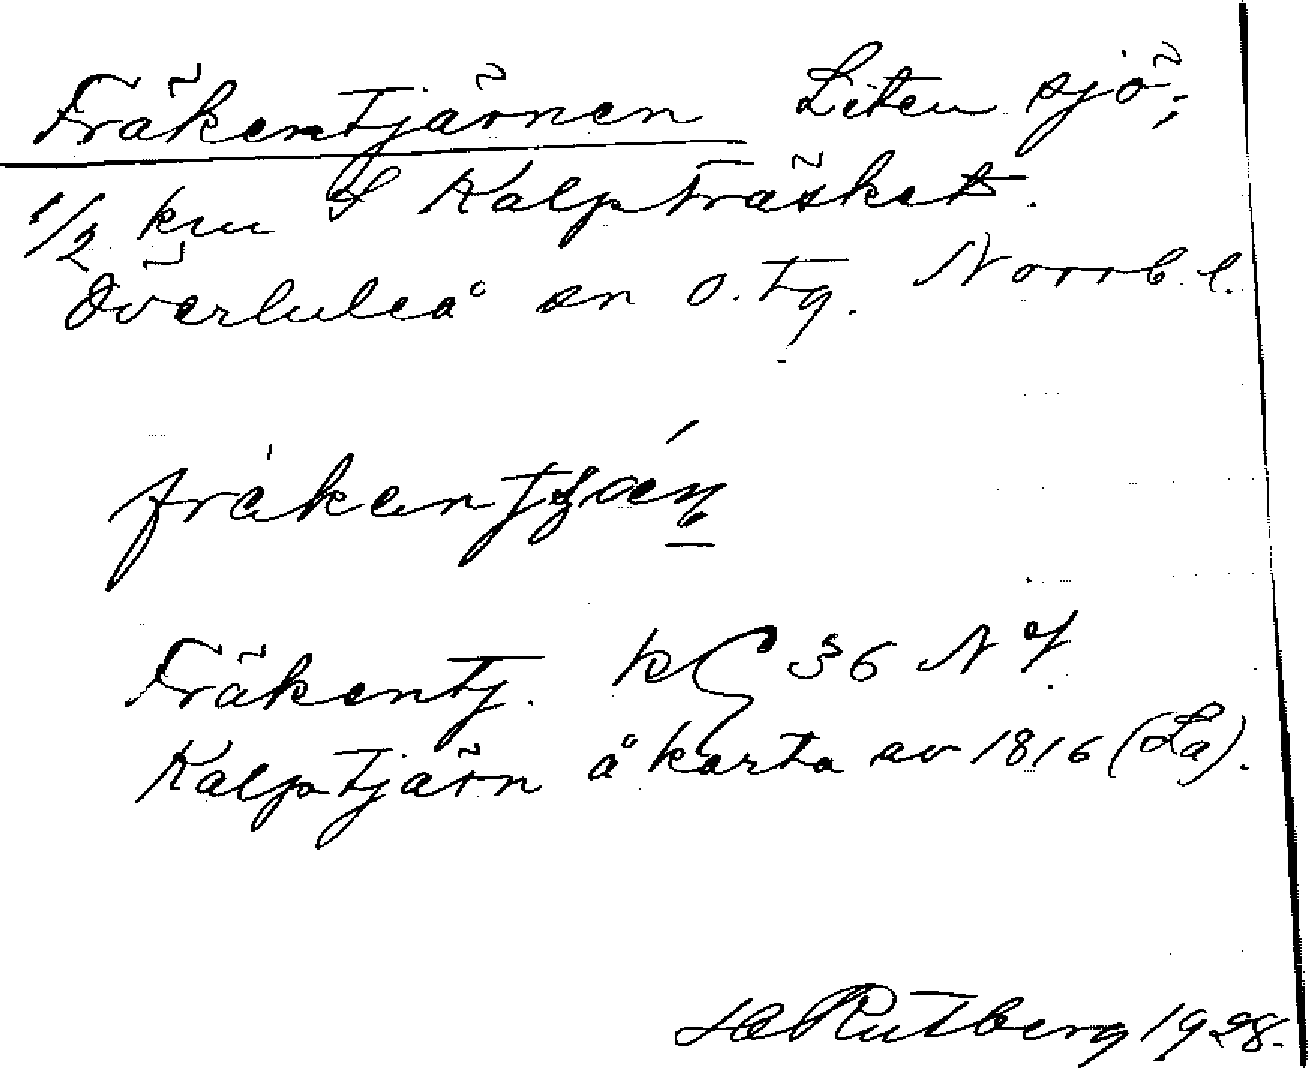 Fräkentjärnen Liten sjö;
1/2 km S Kalpträsket.
Överluleå sn o. tg. Norrb. l.
Fräkentj. k 36 NV.
Kalptjärn å karta av 1816 (La).
H Rutberg 1928.